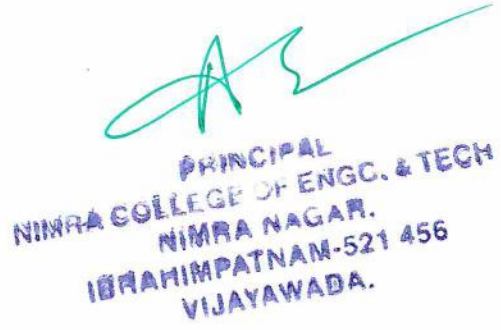 PRINCIPAL
NIMRA COLLEGE OF ENGG. & TECH
NIMRA NAGAR.
IBRAHIMPATNAM-521 456
VIJAYAWADA.